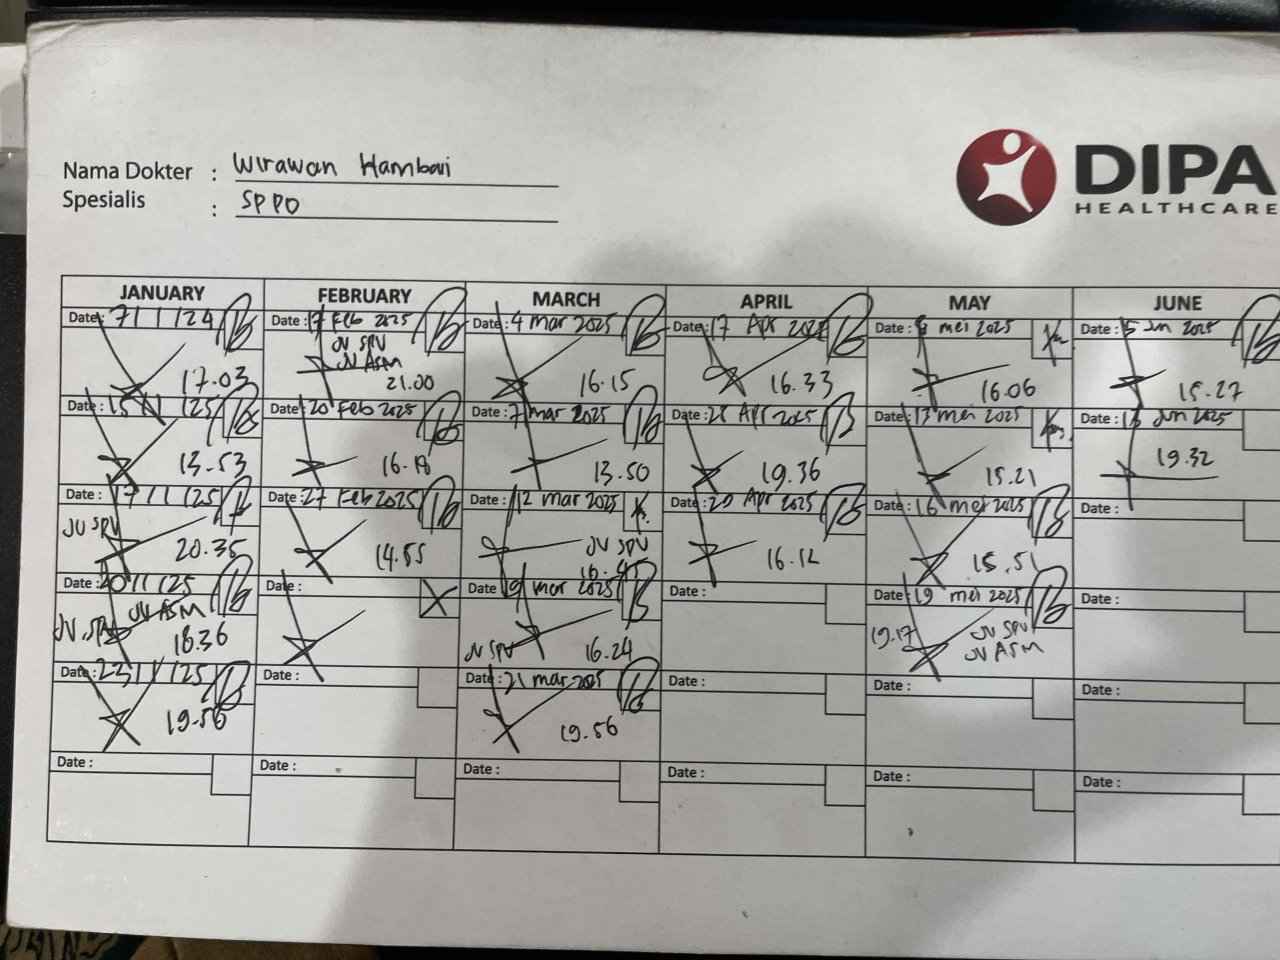 Nama Dokter : Wirawan Hambari
Spesialis : SPPD
DIPA
HEALTHCARE
JANUARY FEBRUARY MARCH APRIL MAY JUNE
Date: 7/1/24
17.03
Date: 17 Feb 2025
JV SPV
JV ASM
21.00
Date: 4 mar 2025
16.15
Date: 17 Apr 2025
16.33
Date: mei 2025
16.06
Date: 5 Jun 2025
15.27
Date: 15/1/25
13.53
Date: 20 Feb 2025
16.18
Date: 7 mar 2025
13.50
Date: Apr 2025
19.36
Date: 13 mei 2025
15.21
Date: Jun 2025
19.32
Date: 17/1/25
JV SPV
20.35
Date: 27 Feb 2025
14.55
Date: 12 mar 2025
JV SPV
Date: 29 Apr 2025
16.12
Date: 16 mei 2025
15.51
Date :
Date: 20/1/25
JV SPV JV ASM
18.36
Date :
Date: 19 mar 2025
JV SPV
16.24
Date :
Date: 19 mei 2025
19.17
JV SPV
JV ASM
Date :
Date: 23/1/25
19.56
Date :
Date: 21 mar 2025
19.56
Date :
Date :
Date :
Date :
Date :
Date :
Date :
Date :
Date :